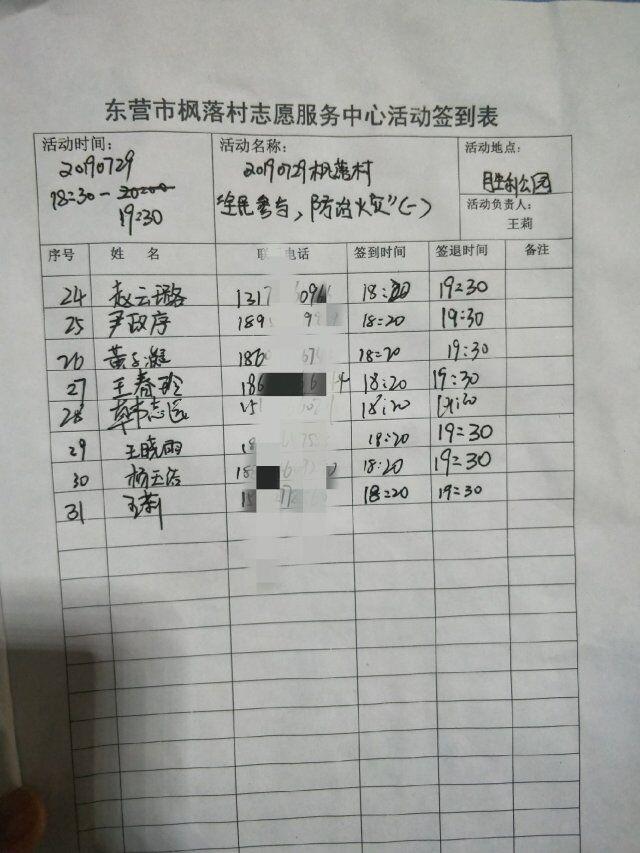 东营市枫落村志愿服务中心活动签到表
活动时间： 活动名称： 活动地点：
20190729 20190729枫落村 胜利公园
18:30-
19:30 "全民参与，防治火灾"(一) 活动负责人：
王莉
序号 姓 名 联 电话 签到时间 签退时间 备注
24 赵云璐 1317 096 18:20 19:30
25 尹政序 189 9 18:20 19:30
26 黄 186 67 18:20 19:30
27 王春玲 186 6 4 18:20 19:30
28 志 18:20
29 王晓雨 18 75 18:20 19:30
30 杨玉洁 18 6 18:20 19:30
31 王莉 1 7 18:20 19:30